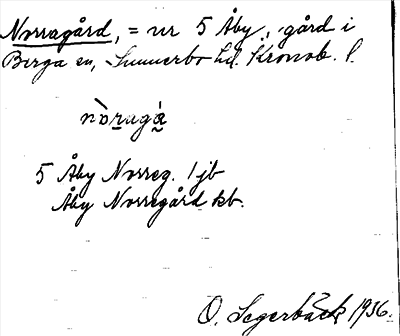 Norragård, = nr 5 Åby, gård i
Berga sn, Sunnerbo hd. Kronob. l.
nòragá
5 Åby Norreg. 1 jb
Åby Norregård kb.
O. Segerbäck 1936.